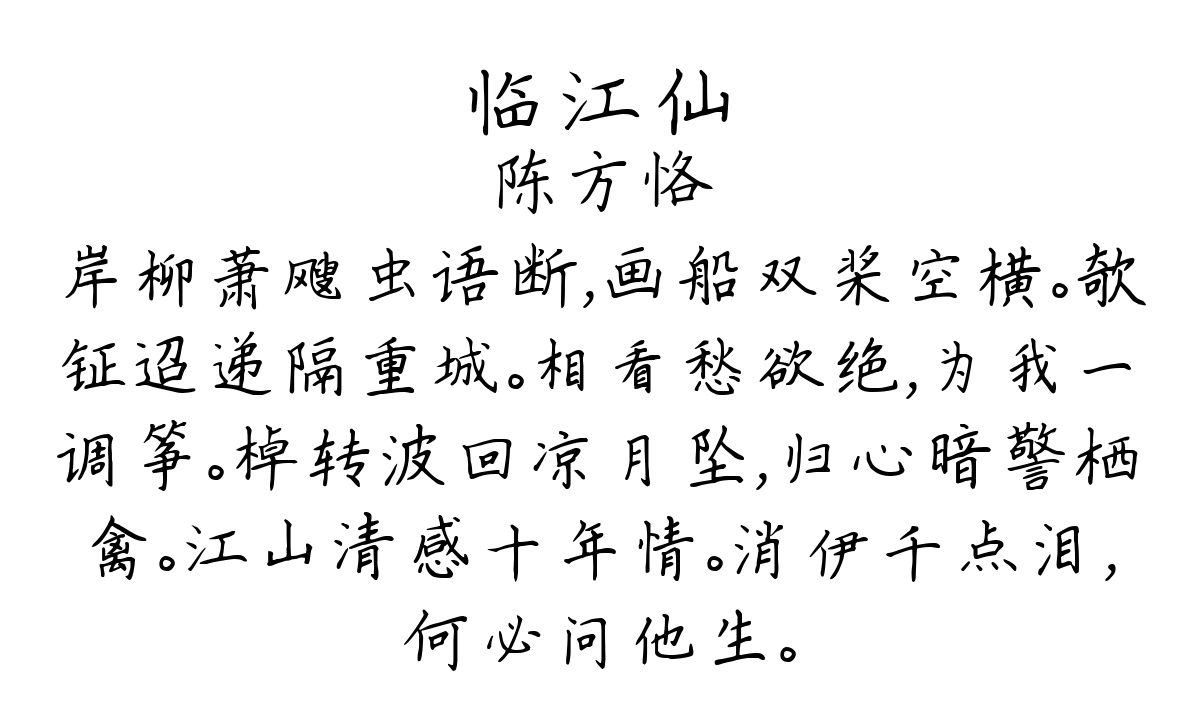 临江仙
陈方恪
岸柳萧飕虫语断,画船双桨空横。欹
钲迢递隔重城。相看愁欲绝,为我一
调筝。棹转波回凉月坠,归心暗警栖
禽。江山清感十年情。消伊千点泪,
何必问他生。